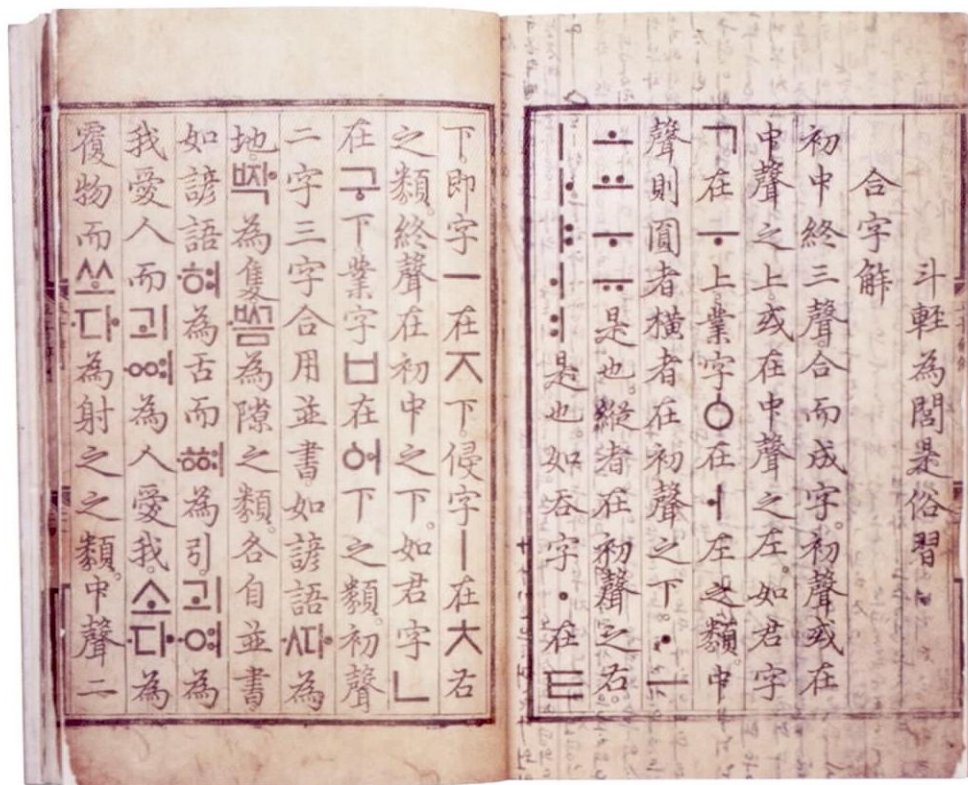 斗輕為閭是俗習
合字解
初中終三聲合而成字。初聲或在
中聲之上或在中聲之左。如君字
ㄱ在ㅜ上業字ㆁ在ㅓ左之類。中
聲則圓者橫者在初聲之下ㆍㅡ
ㅗㅛㅜㅠ是也。縱者在初聲之右。
ㅣㅏㅑㅓㅕ是也如吞字ㆍ在ㅌ
下。即字ㅡ在ㅈ下。侵字ㅣ在ㅊ右
之類。終聲在初中之下。如君字ㄴ
在구下業字ㅂ在ᅌᅥ下之類。初聲
二字三字合用並書。如諺語ᄯᅡ為
地。ᄧᅡᆨ為隻ᄢᅳᆷ為隙之類。各自並書
如諺語혀為舌而ᅘᅧ為引。괴여為
我愛人而괴ᅇᅧ為人愛我。소다為
覆物而쏘다為射之之類。中聲二